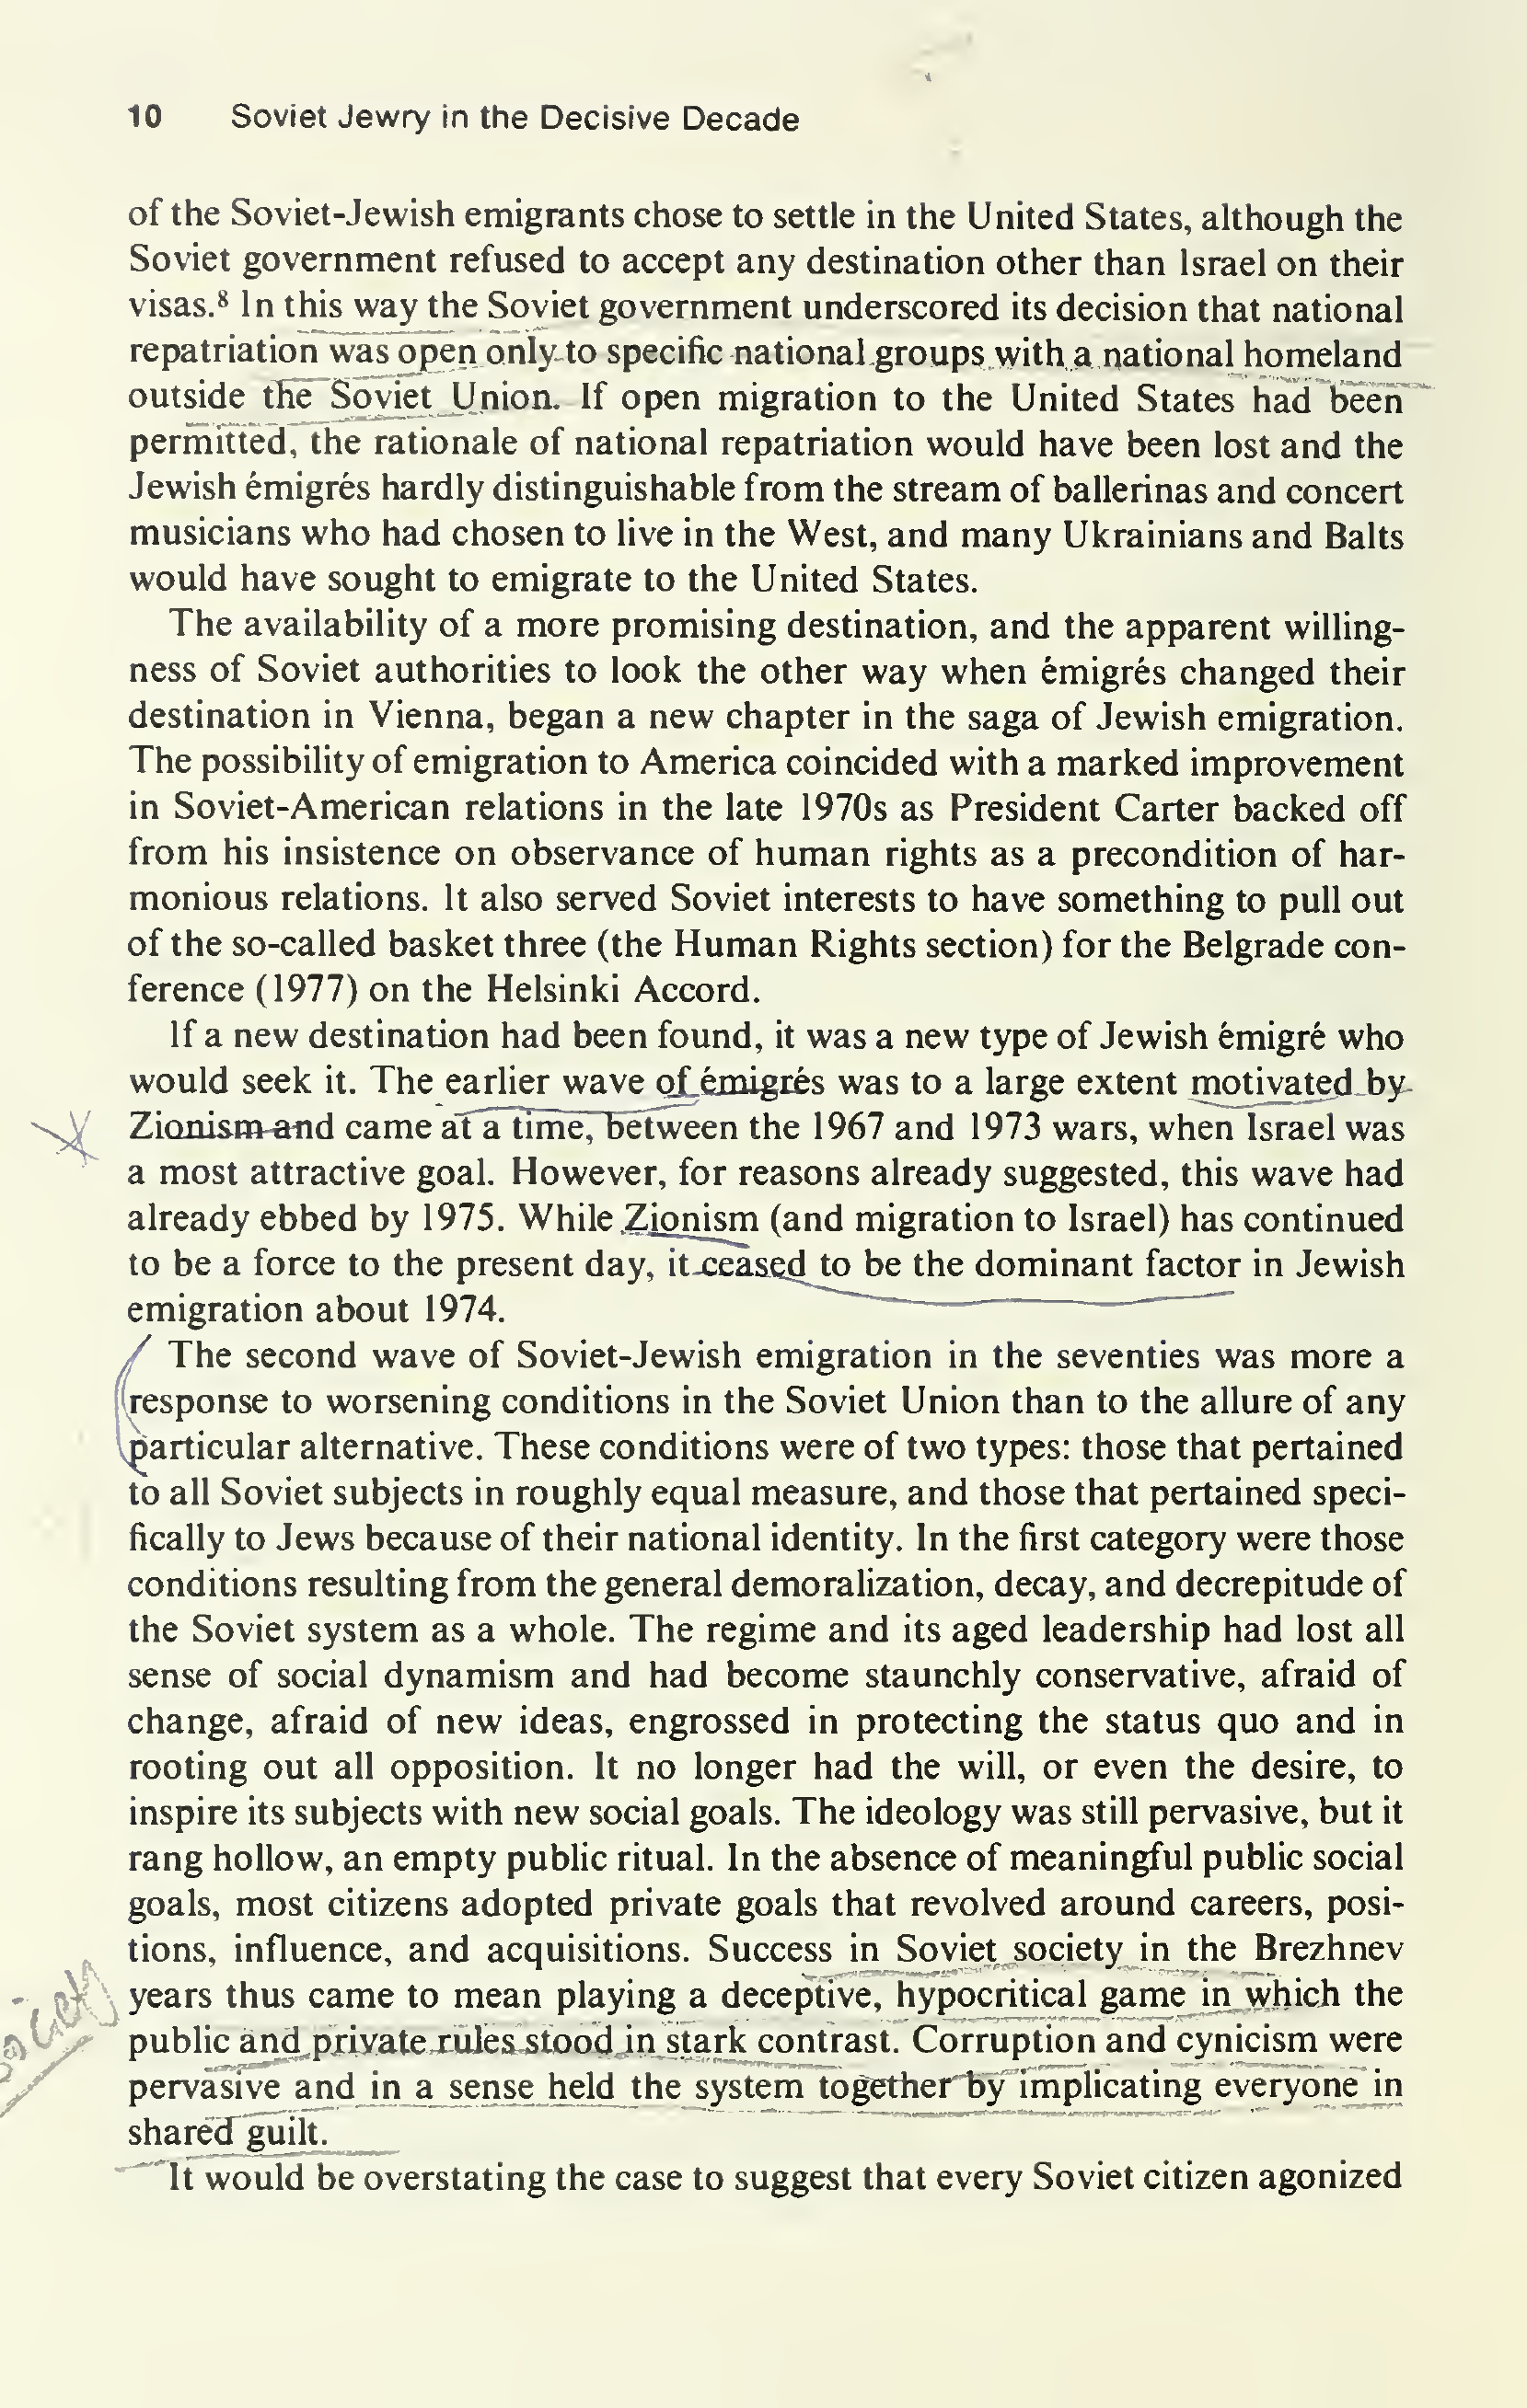 10 Soviet Jewry in the Decisive Decade
of the Soviet-Jewish emigrants chose to settle in the United States, although the
Soviet government refused to accept any destination other than Israel on their
visas.⁸ In this way the Soviet government underscored its decision that national
repatriation was open only to specific national groups with a national homeland
outside the Soviet Union. If open migration to the United States had been
permitted, the rationale of national repatriation would have been lost and the
Jewish émigrés hardly distinguishable from the stream of ballerinas and concert
musicians who had chosen to live in the West, and many Ukrainians and Balts
would have sought to emigrate to the United States.
The availability of a more promising destination, and the apparent willing-
ness of Soviet authorities to look the other way when émigrés changed their
destination in Vienna, began a new chapter in the saga of Jewish emigration.
The possibility of emigration to America coincided with a marked improvement
in Soviet-American relations in the late 1970s as President Carter backed off
from his insistence on observance of human rights as a precondition of har-
monious relations. It also served Soviet interests to have something to pull out
of the so-called basket three (the Human Rights section) for the Belgrade con-
ference (1977) on the Helsinki Accord.
If a new destination had been found, it was a new type of Jewish émigré who
would seek it. The earlier wave of émigrés was to a large extent motivated by
Zionism and came at a time, between the 1967 and 1973 wars, when Israel was
a most attractive goal. However, for reasons already suggested, this wave had
already ebbed by 1975. While Zionism (and migration to Israel) has continued
to be a force to the present day, it ceased to be the dominant factor in Jewish
emigration about 1974.
The second wave of Soviet-Jewish emigration in the seventies was more a
response to worsening conditions in the Soviet Union than to the allure of any
particular alternative. These conditions were of two types: those that pertained
to all Soviet subjects in roughly equal measure, and those that pertained speci-
fically to Jews because of their national identity. In the first category were those
conditions resulting from the general demoralization, decay, and decrepitude of
the Soviet system as a whole. The regime and its aged leadership had lost all
sense of social dynamism and had become staunchly conservative, afraid of
change, afraid of new ideas, engrossed in protecting the status quo and in
rooting out all opposition. It no longer had the will, or even the desire, to
inspire its subjects with new social goals. The ideology was still pervasive, but it
rang hollow, an empty public ritual. In the absence of meaningful public social
goals, most citizens adopted private goals that revolved around careers, posi-
tions, influence, and acquisitions. Success in Soviet society in the Brezhnev
years thus came to mean playing a deceptive, hypocritical game in which the
public and private rules stood in stark contrast. Corruption and cynicism were
pervasive and in a sense held the system together by implicating everyone in
shared guilt.
It would be overstating the case to suggest that every Soviet citizen agonized
society